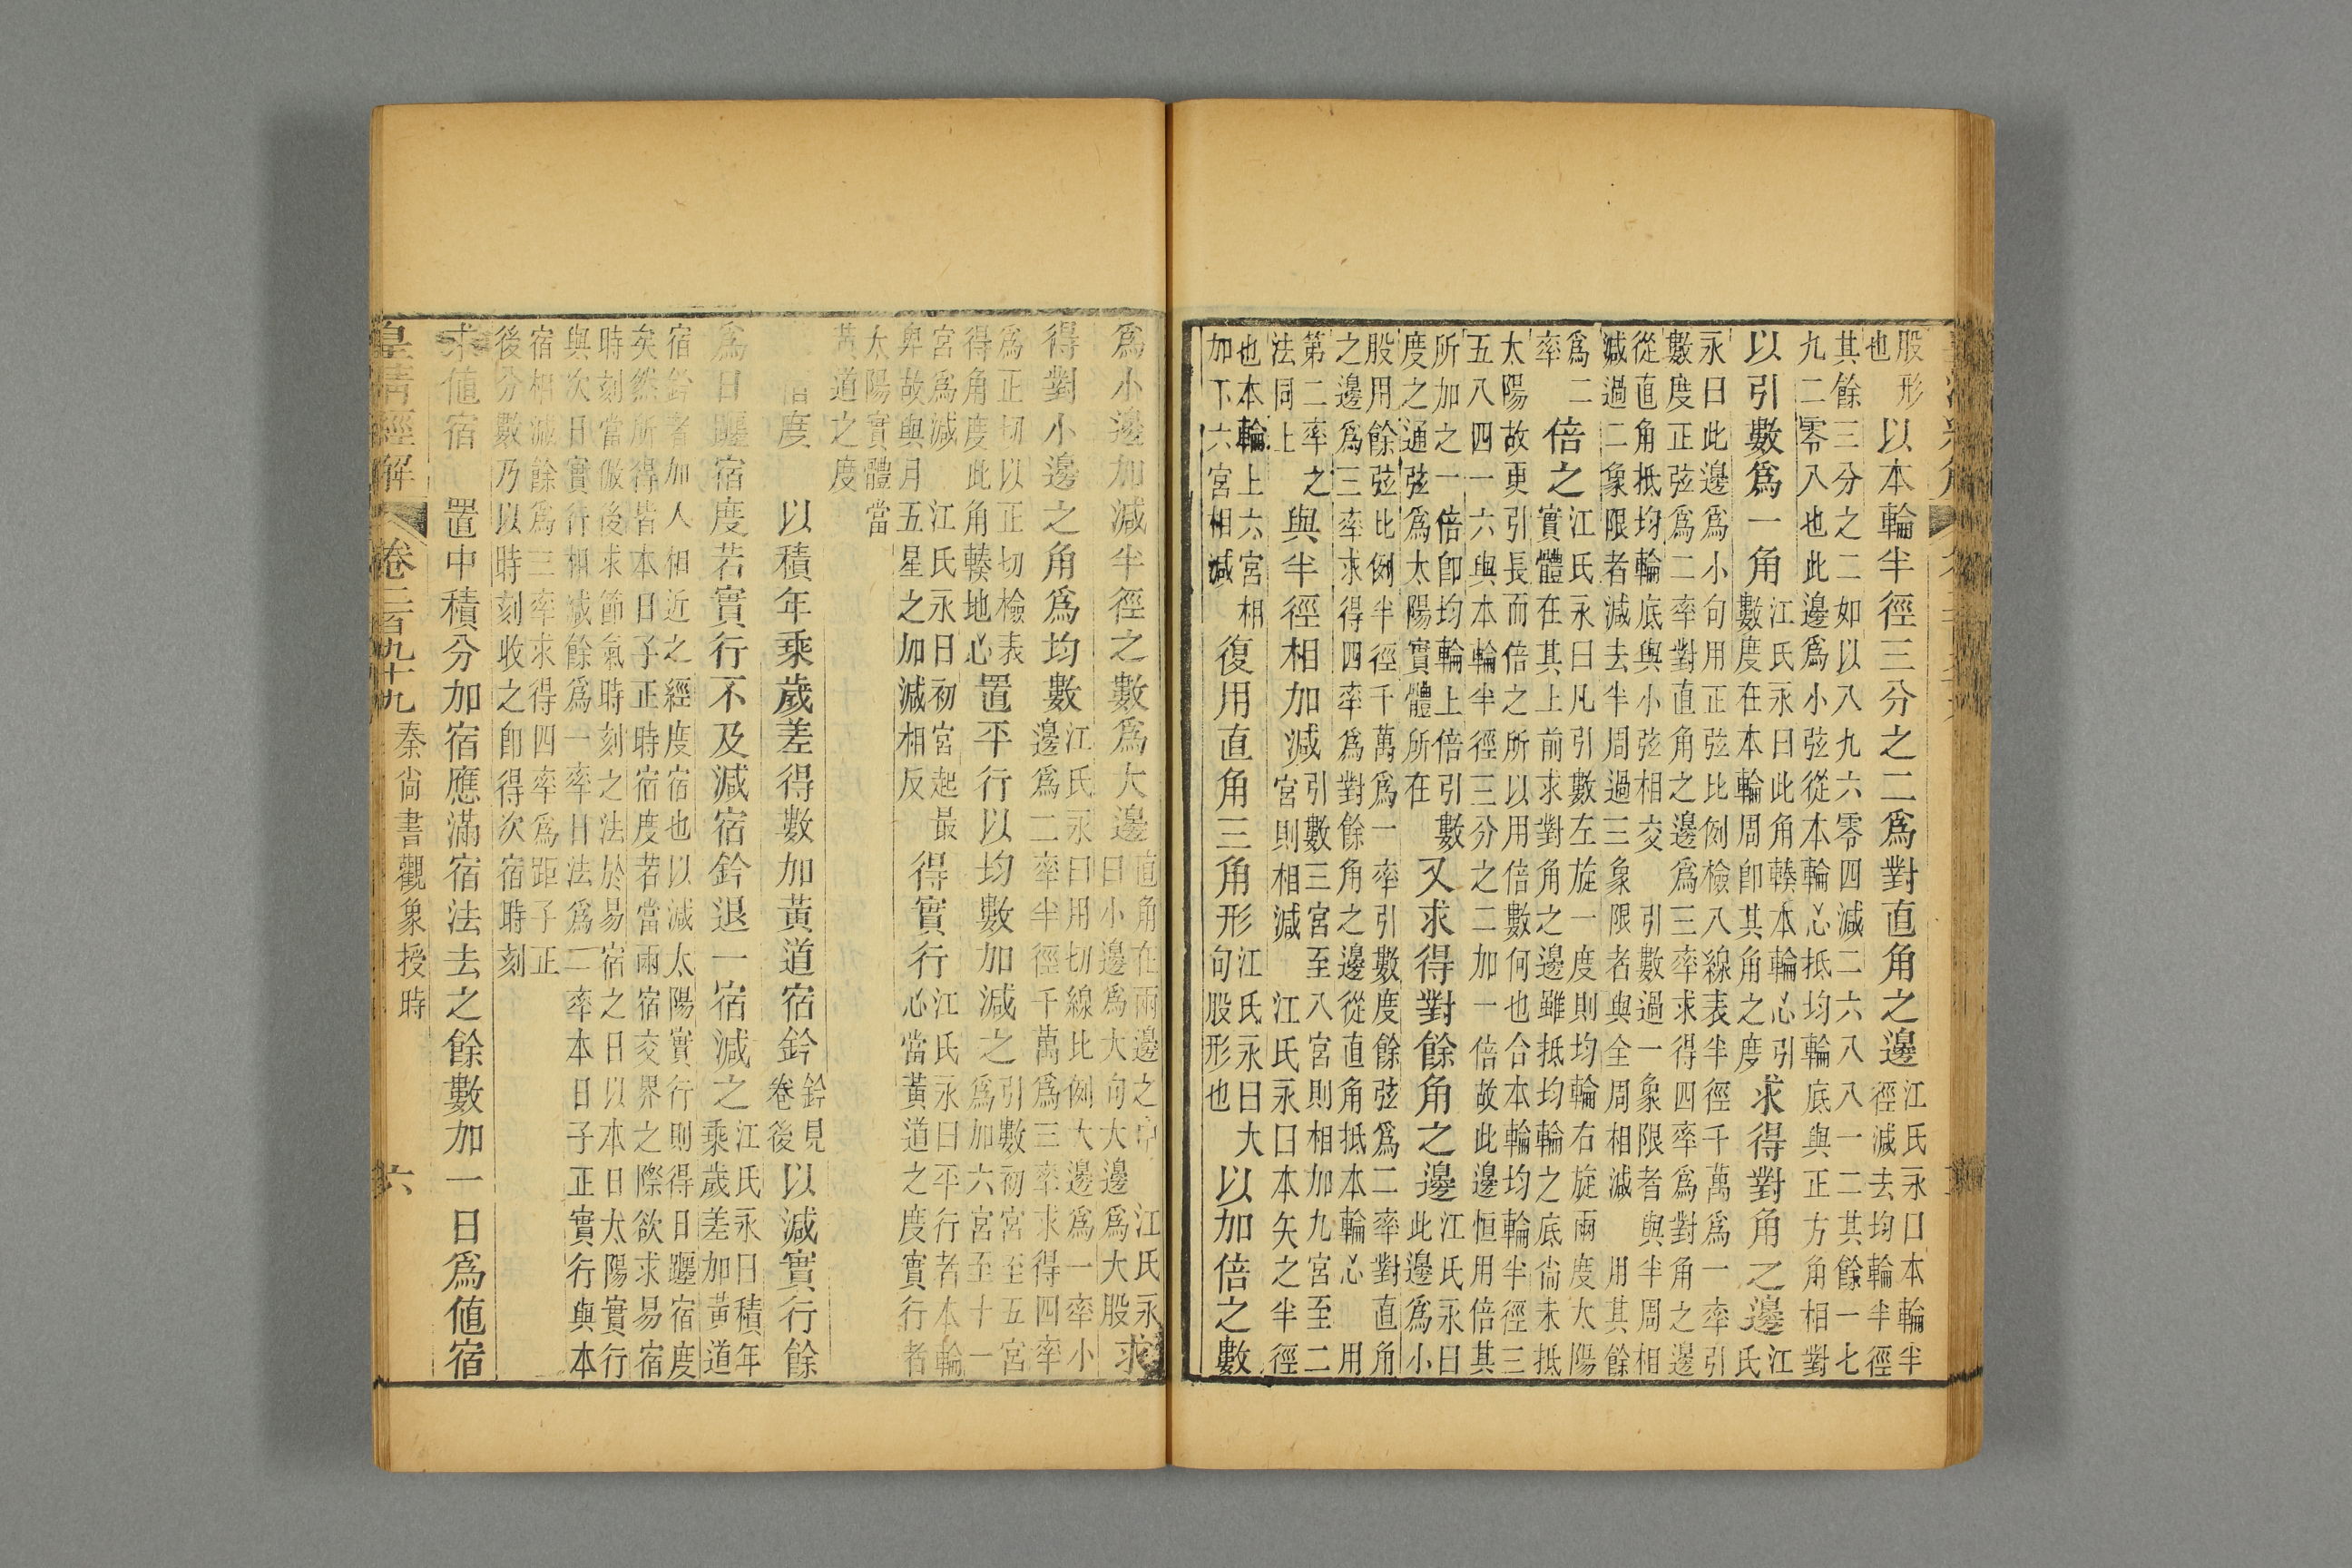 股形
也
以本輪半徑三分之二爲對直角之邊
江氏永曰本輪半
徑減去均輪半徑
其餘三分之二如以八九六零四減二六八八一二其餘一七
九二零八也此邊爲小弦從本輪心抵均輪底與正方角相對
以引數爲一角
江氏永曰此角輳本輪心引
數度在本輪周卽其角之度
求得對角之邊
江
氏
永曰此邊爲小句用正弦比例檢八線表半徑千萬爲一率引
數度正弦爲二率對直角之邊爲三率求得四率爲對角之邊
從直角抵均輪底與小弦相交 引數過一象限者與半周相
減過二象限者減去半周過三象限者與全周相減 用其餘
爲二
率
倍之
江氏永曰凡引數左旋一度則均輪右旋兩度太陽
實體在其上前求對角之邊雖抵均輪之底尙未抵
太陽故更引長而倍之所以用倍數何也合本輪均輪半徑三
五八四一六與本輪半徑三分之二加一倍故此邊恒用倍其
所加之一倍卽均輪上倍引數
度之通弦爲太陽實體所在
又求得對餘角之邊
江氏永曰
此邊爲小
股用餘弦比例半徑千萬爲一率引數度餘弦爲二率對直角
之邊爲三率求得四率爲對餘角之邊從直角抵本輪心 用
第二率之
法同上
與半徑相加減
引數三宮至八宮則相加九宮至二
宮則相減 江氏永曰本矢之半徑
也本輪上六宮相
加下六宮相減
復用直角三角形
江氏永曰大
句股形也
以加倍之數
爲小邊加減半徑之數爲大邊
直角在兩邊之中 江氏永
曰小邊爲大句大邊爲大股
求
得對小邊之角爲均數
江氏永曰用切線比例大邊爲一率小
邊爲二率半徑千萬爲三率求得四率
爲正切以正切檢表
得角度此角輳地心
置平行以均數加減之
引數初宮至五宮
爲加六宮至十一
宮爲減 江氏永曰初宮起最
卑故與月五星之加減相反
得實行
江氏永曰平行者本輪
心當黃道之度實行者
太陽實體當
黃道之度
宿度 以積年乘歲差得數加黃道宿鈐
鈐見
卷後
以減實行餘
爲日躔宿度若實行不及減宿鈐退一宿減之
江氏永曰積年
乘歲差加黃道
宿鈐者加人相近之經度宿也以減太陽實行則得日躔宿度
矣然所得皆本日子正時宿度若當兩宿交界之際欲求易宿
時刻當倣後求節氣時刻之法於易宿之日以本日太陽實行
與次日實行相減餘爲一率日法爲二率本日子正實行與本
宿相減餘爲三率求得四率爲距子正
後分數乃以時刻收之卽得次宿時刻
求値宿 置中積分加宿應滿宿法去之餘數加一日爲値宿
皇清經解 卷二百九十九 秦尙書觀象授時 六